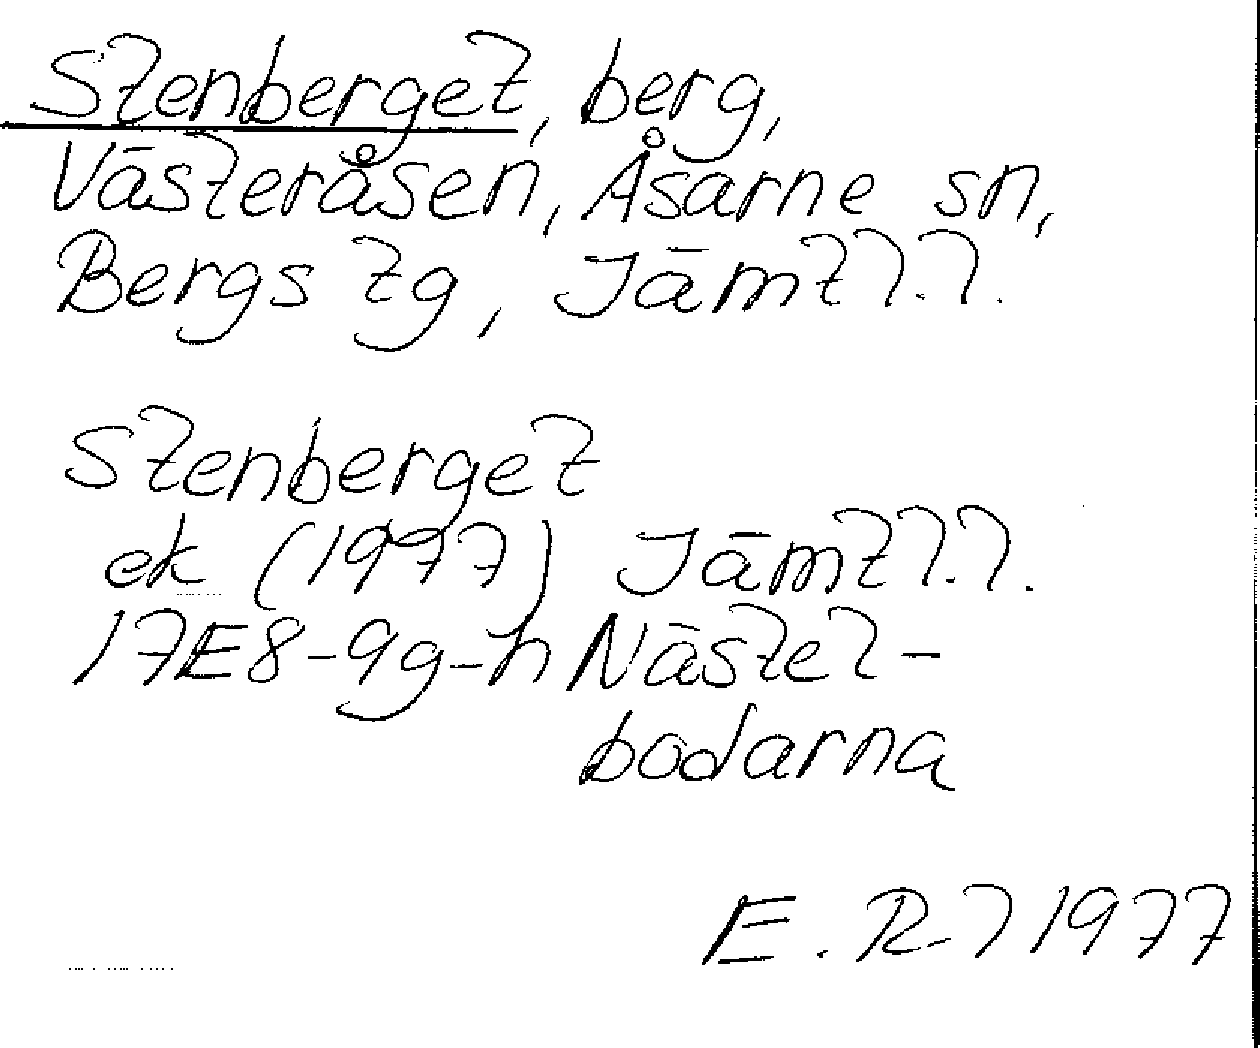 Stenberget, berg,
Västeråsen, Åsarne sn,
Bergs tg, Jämtl.l.
Stenberget
ek (1977) Jämtl.l.
17E8-9g-h Nästel-
bodarna
E. R-l 1977